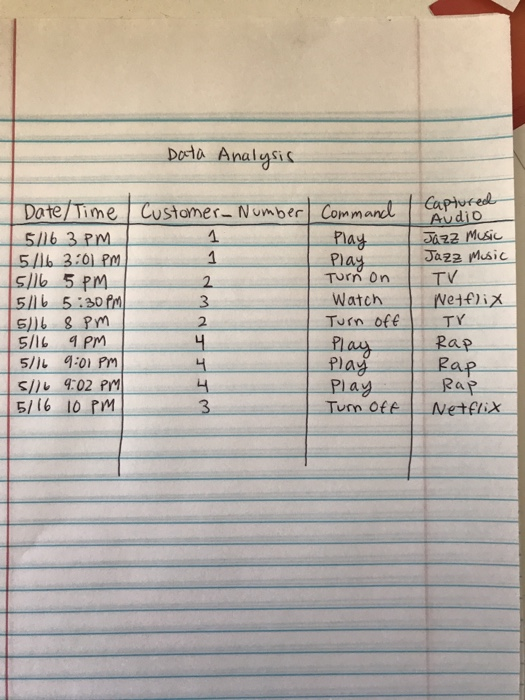 Data Analysis
Date/Time Customer_Number Command Captured Audio
5/16 3 PM 1 Play Jazz Music
5/16 3:01 PM 1 Play Jazz Music
5/16 5 PM 2 Turn On TV
5/16 5:30 PM 3 Watch Netflix
5/16 8 PM 2 Turn Off TV
5/16 9 PM 4 Play Rap
5/16 9:01 PM 4 Play Rap
5/16 9:02 PM 4 Play Rap
5/16 10 PM 3 Turn Off Netflix